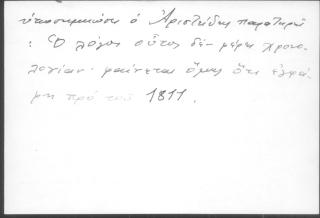 ὑποσημειώσει ὁ Ἀριστείδης παρατηρεῖ
: Ὁ λόγος οὗτος δὲν φέρει χρονο-
λογίαν· φαίνεται ὅμως ὅτι ἐγρά-
φη πρό τοῦ 1811.